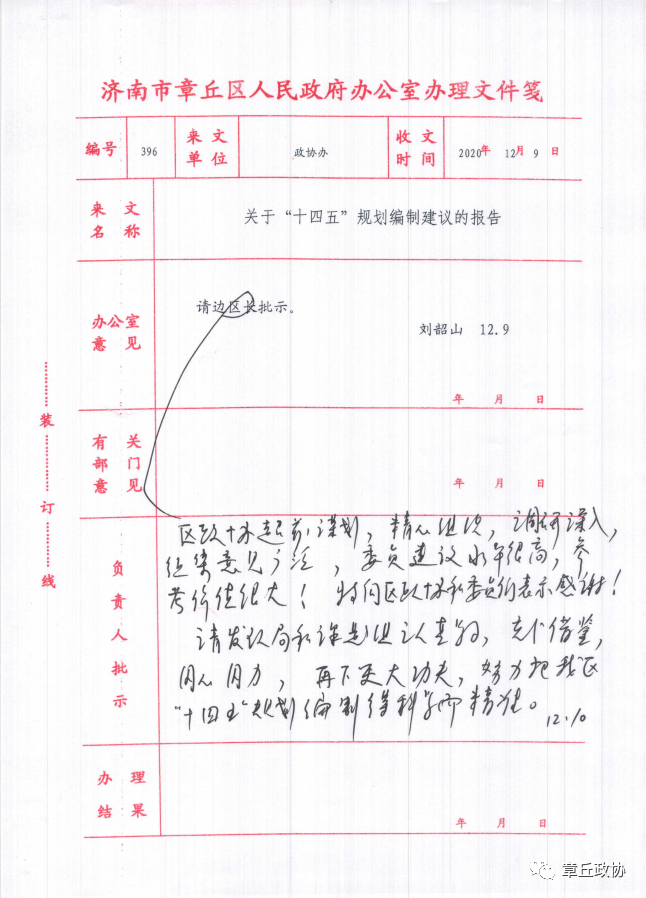 济南市章丘区人民政府办公室办理文件笺
编号 396 来文单位 政协办 收文时间 2020年 12月 9日
来文名称 关于“十四五”规划编制建议的报告
办公室意见 请边区长批示。
刘韶山 12.9
年 月 日
有关部门意见
年 月 日
负责人批示
区政协超前谋划，精心组织，调研深入，
征集意见广泛，委员建议水平很高，参
考价值很大！特向区政协和委员们表示感谢！
请发改局和课题组认真研究，充分借鉴，
同心同力，再下更大功夫，努力把我区
“十四五”规划编制得科学而精准。 12.10
办理结果
年 月 日
装
订
线
章丘政协